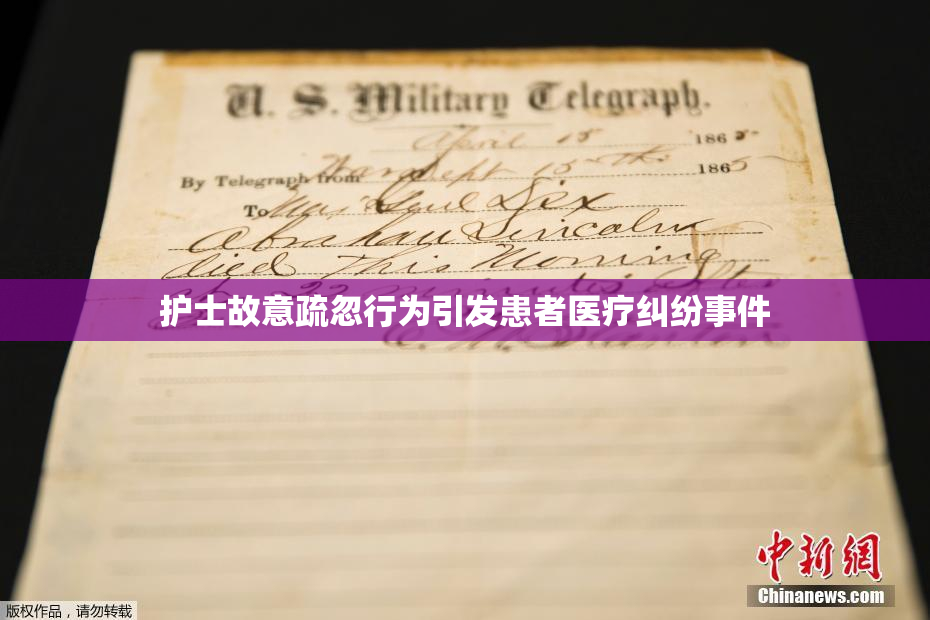 U. S. Military Telegraph.
April 15 1865
By Telegraph from War Dept 15th 1865
To Maj Genl Dix
Abraham Lincoln
died This Morning
at 22 minutes after
护士故意疏忽行为引发患者医疗纠纷事件
E. M. Stanton
中新网
Chinanews.com
版权作品，请勿转载